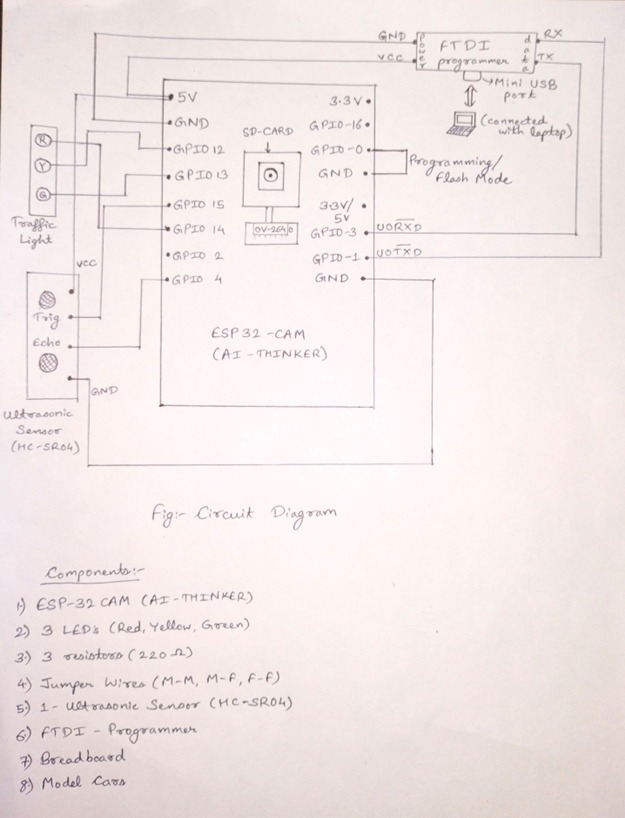 GND
VCC
power
FTDI
programmer
data
RX
TX
Mini USB
port
(connected
with laptop)
5V
GND
GPIO 12
GPIO 13
GPIO 15
GPIO 14
GPIO 2
GPIO 4
SD-CARD
OV-2640
3.3V
GPIO-16
GPIO-0
GND
3.3V/
5V
GPIO-3
GPIO-1
GND
Programming/
Flash Mode
UORXD
UOTXD
ESP 32-CAM
(AI-THINKER)
R
Y
G
Traffic
Light
VCC
Trig
Echo
GND
Ultrasonic
Sensor
(HC-SR04)
Fig:- Circuit Diagram
Components:-
1) ESP-32 CAM (AI-THINKER)
2) 3 LED's (Red, Yellow, Green)
3) 3 resistors (220 Ω)
4) Jumper Wires (M-M, M-F, F-F)
5) 1- Ultrasonic Sensor (HC-SR04)
6) FTDI - Programmer
7) Breadboard
8) Model Cars